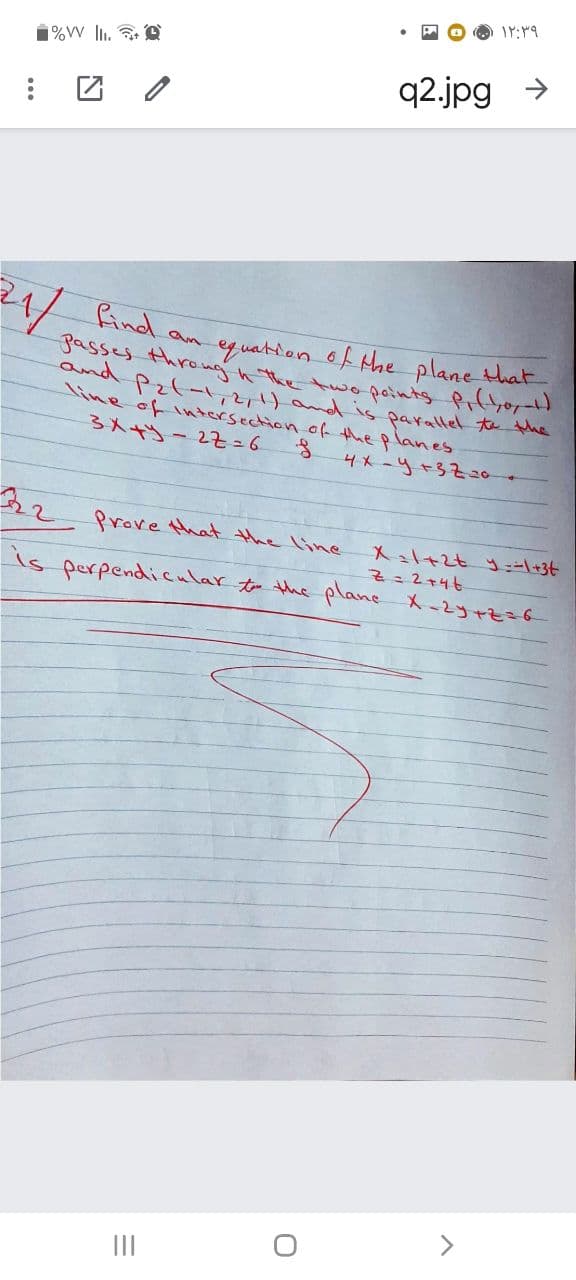 %٧٧ ١٢:٣٩
q2.jpg
Q1/ find an equation of the plane that
passes through the two points P₁(1,0,-1)
and P2(-1,2,1) and is parallel to the
line of intersection of the planes
3x+y-2z=6 & 4x-y+3z=0.
Q2 Prove that the line x=1+2t y=-1+3t
z=2+4t
is perpendicular to the plane x-2y+z=6